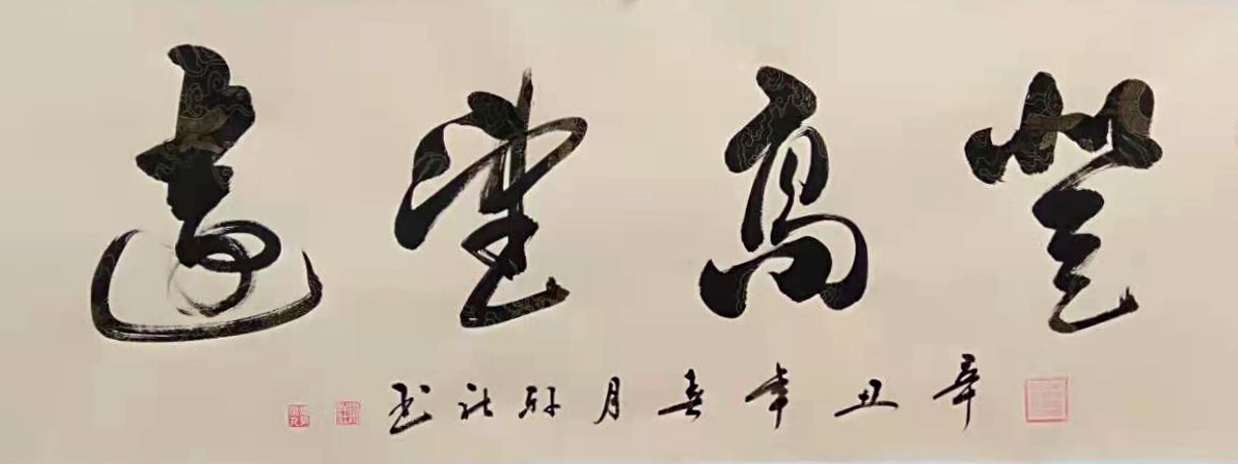 登高望远
辛丑年春月
书